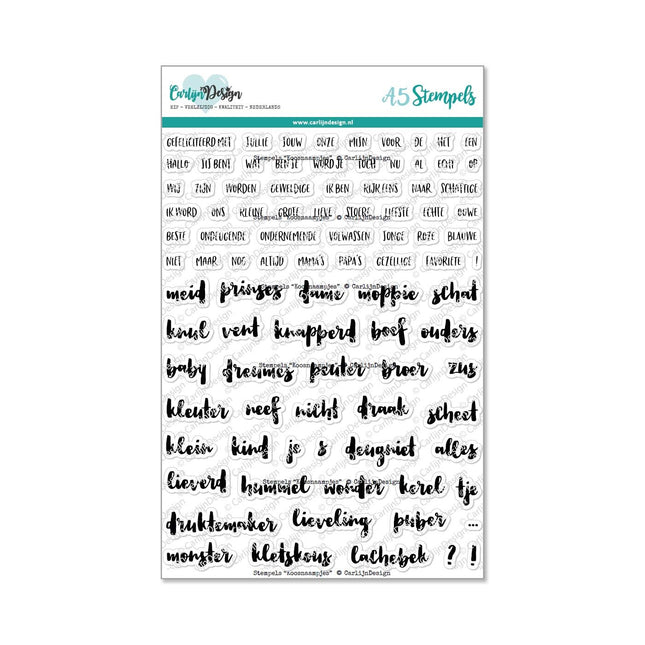 CarlijnDesign
A5 Stempels
HIP - VEELZIJDIG - KWALITEIT - NEDERLANDS
www.carlijndesign.nl
GEFELICITEERD MET JULLIE JOUW ONZE MIJN VOOR DE HET EEN
Stempels "Koosnaampjes" © CarlijnDesign
HALLO JIJ BENT WAT BEN JE WORD JE TOCH NU AL ECHT OP
WIJ ZIJN WORDEN GEWELDIGE IK BEN KIJK EENS NAAR SCHATTIGE
IK WORD ONS KLEINE GROTE LIEVE STOERE LIEFSTE ECHTE OUWE
Stempels "Koosnaampjes" © CarlijnDesign
BESTE ONDEUGENDE ONDERNEMENDE VOLWASSEN JONGE ROZE BLAUWE
NIET MAAR NOG ALTIJD MAMA'S PAPA'S GEZELLIGE FAVORIETE !
Stempels "Koosnaampjes" © CarlijnDesign
meid prinses dame moppie schat
knul vent knapperd boef ouders
Stempels "Koosnaampjes" © CarlijnDesign
baby dreumes peuter broer zus
kleuter neef nicht draak scheet
klein kind je & deugniet alles
Stempels "Koosnaampjes" © CarlijnDesign
lieverd hummel wonder kerel tje
druktemaker lieveling puber ...
monster kletskous lachebek ? !
Stempels "Koosnaampjes" © CarlijnDesign